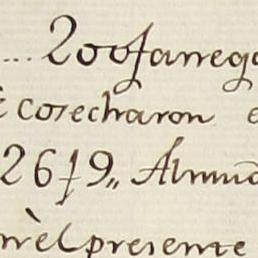 ... 200 fanega
cosecharon e
2619,, Almud
el presente